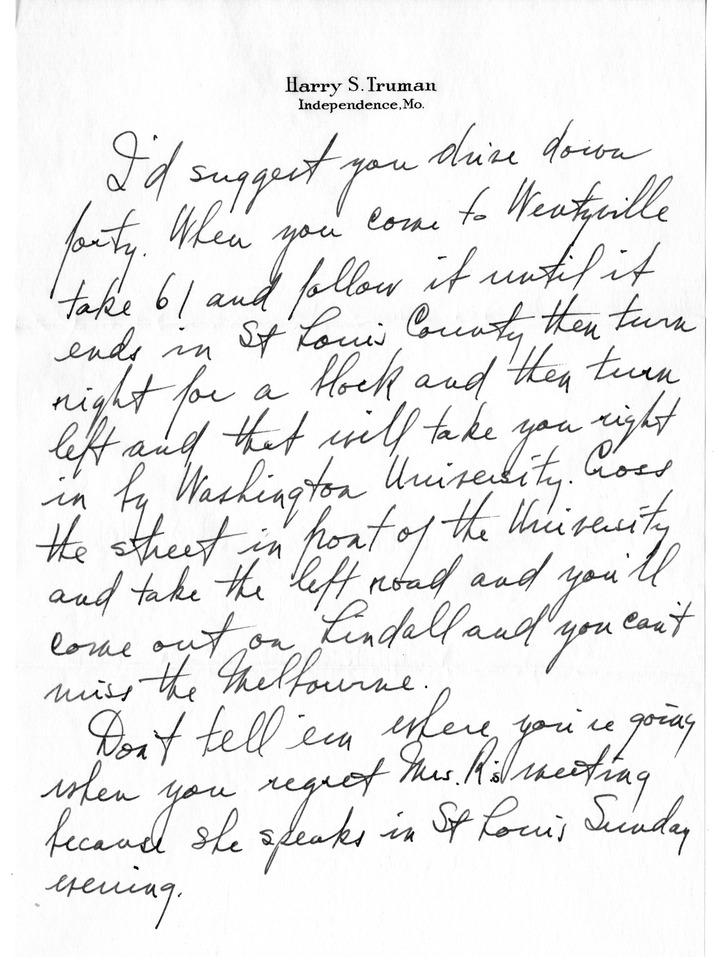 Harry S. Truman
Independence, Mo.
I'd suggest you drive down
forty. When you come to Wentzville
take 61 and follow it until it
ends in St Louis County, then turn
right for a block and then turn
left and that will take you right
in by Washington University. Cross
the street in front of the University
and take the left road and you'll
come out on Lindall and you can't
miss the Melbourne.
Don't tell 'em where you're going
when you regret Mrs. R's meeting
because she speaks in St Louis Sunday
evening.